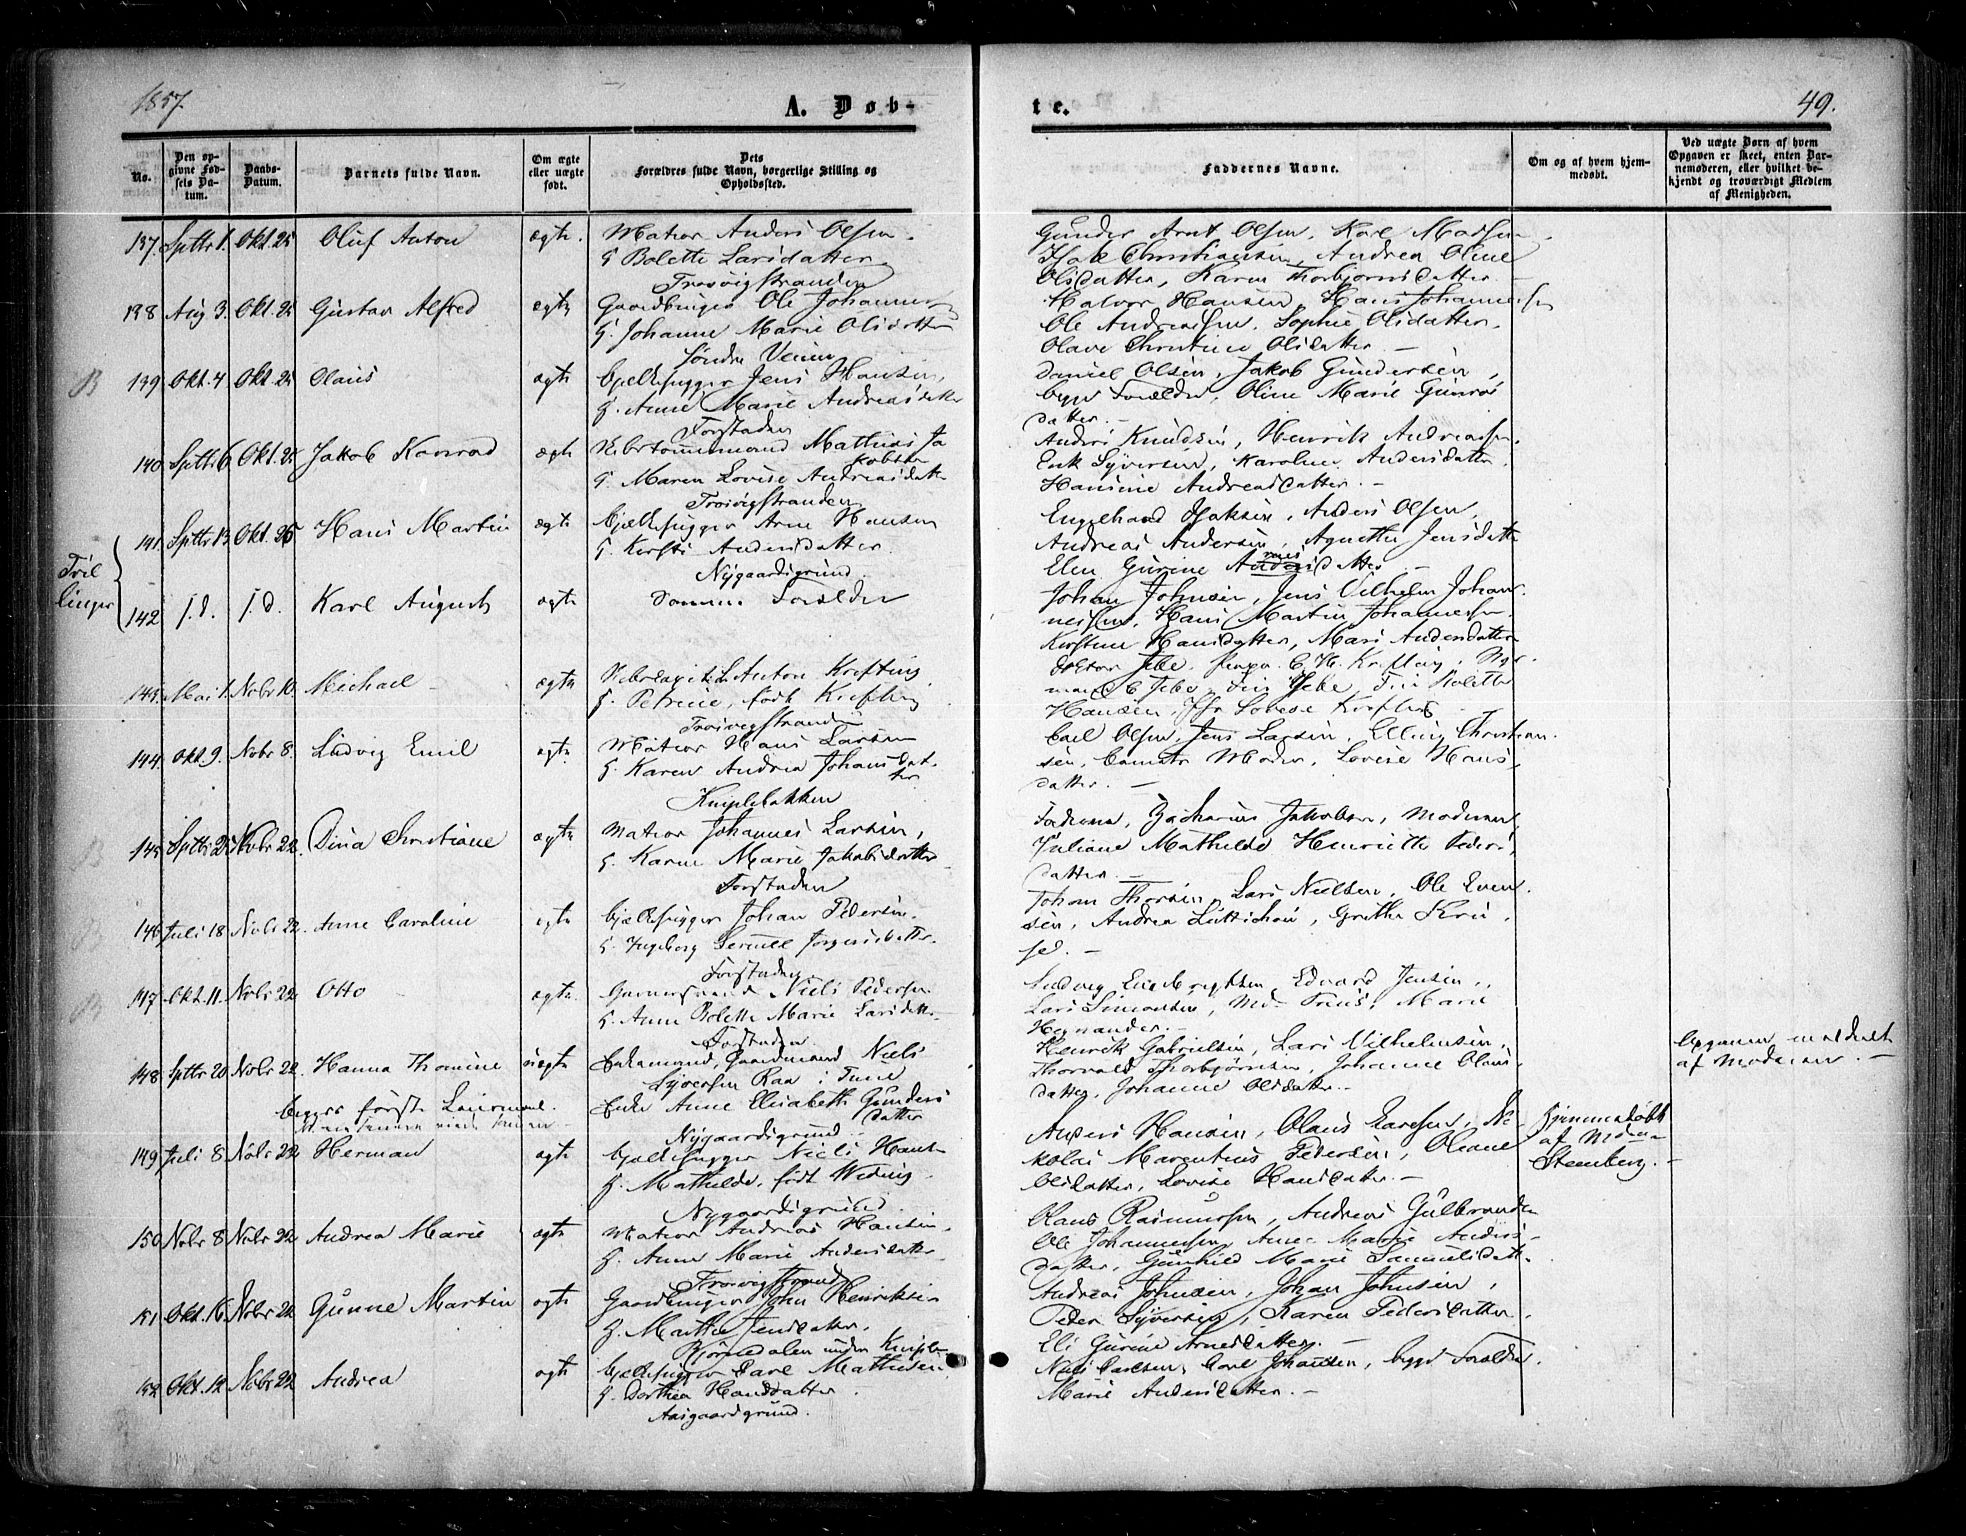 1857.
A. Døb-
te.
49.
No.
Den op-
givne Fød-
sels Da-
tum.
Daabs-
Datum.
Barnets fulde Navn.
Om ægte
eller uægte
født.
Dets
Forældres fulde Navn, borgerlige Stilling og
Opholdssted.
Faddernes Navne.
Om og af hvem hjem-
medøbt.
Ved uægte Børn af hvem
Opgaven er skeet, enten Bar-
nemoderen, eller hvilket be-
kjendt og troværdigt Medlem
af Menigheden.
137. Sptbr 1. Okt. 25 Oluf Anton ægte. Matros Anders Olsen.
G. Bolette Larsdatter
Trosvigstranden
Gunder Arnt Olsen, Karl Madsen
Isak Christiansen, Andrea Oline
Olsdatter, Karen Thorbjørnsdatter
138 Aug 3. Okt. 25 Gustav Alfred ægte Gaardbruger Ole Johannesen
G. Johanne Marie Olsdatter
Søndre
Halvor Hansen, Hans Johannesen
Ole Andreassen, Sophie Olsdatter,
Olave Christine Olsdatter. —
B 139 Okt. 4 Okt. 25 Olaus ægte Bjælkehugger Jens Hansen,
G. Anne Marie Andreasdatter
Forstaden
Daniel Olsen, Jakob Gundersen,
begge Forældre, Oline Marie
datter. —
140 Sptbr 6. Okt. 25 Jakob Konrad ægte Mathias Ja
kobsen
G. Maren Lovise Andreasdatter
Trosvigstranden
Anders Knudsen, Henrik Andreassen.
Erik Syversen, Karoline Andersdatter,
Hansine Andreasdatter. —
Tvil
linger
141. Sptbr 13. Okt. 25 Hans Martin ægte Bjælkehugger Arne Hansen
G. Kirsti Andersdatter.
Nygaardsgrund.
Engelhard Isaksen, Anders Olsen,
Andreas Andersen, Agnethe Jensdatter
Elen Gurine
142 j. d. j. d. Karl August ægte Samme Forældre
Johan Johnsen, Jens Vilhelm Johan
nessen, Hans Martin Johannessen.
Kirstine Hansdatter, Mari Andersdatter
143. Mai 1. Nobr 10. Michael — ægte Anton Krefting
G. Petrine, født Krefting
Trosvigstranden
C. H. Krefting.
Hansen, Lovise Krefting
144. Okt. 9. Nobr 8. Ludvig Emil ægte. Matros Hans Larsen
G. Karen Andrea Johansdat-
ter
Kniplebakken
Carl Olsen, Jens Larsen, Elling Christian
sen, Moder, Lovise Hans
datter. —
B 145 Sptbr 25 Nobr 22. Dina Christiane ægte Matros Johannes Larsen,
G. Karen Marie Jakobsdatter
Forstaden
Faderen, Zacharius Jakobsen, Moderen,
Juliane Mathilde Henriette Peders
datter. —
B 146 Juli 18 Nobr 22. Anne Caroline ægte Bjælkehugger Johan Pedersen.
G. Ingeborg Jørgensdatter.
Forstaden
Johan Thorsen, Lars Nielsen, Ole Even
sen, Andrea Grethe
B 147 Okt. 11. Nobr 22 Otto ægte. Niels Pedersen
G. Anne Bolette Marie Larsdatter
Forstaden.
Ludvig Edvard Jensen,
Lars Simonsen, Marie
148. Sptbr 20 Nobr 22. Hanna Thomine uægte Enkemand, Gaardmand Niels
Syversen Raa i Tune
Enke Anne Elisabeth Gunders
datter
Nygaardsgrund.
Begges første Leiermaal.
Henrik Gabrielsen, Lars Vilhelmsen,
Thorvald Thorbjørnsen, Johanne Olaus
datter, Johanne Olsdatter. —
Opgaven meddelt
af Moderen. —
149 Juli 8 Nobr 22 Herman ægte Bjælkehugger Niels Hansen
G. Mathilde, født Weding.
Nygaardsgrund.
Anders Hansen, Olaus Larsen, Ni-
kolai Marentius Pedersen, Oliane
Olsdatter, Lovise Hansdatter. —
Hjemmedøbt
af
Steenberg. —
150 Nobr 8 Nobr 22 Andrea Marie ægte Matros Andreas Hansen.
G. Anne Marie Andersdatter
Trosvigstrand
Olaus Rasmussen, Andreas Gulbrandsen
Ole Johannessen, Anne Marie Anders-
datter, Gunhild Marie Samuelsdatter.
151 Okt. 16. Nobr 22. Gunne Martin ægte Gaardbruger John Henriksen
G. Marthe Jensdatter.
Bjørnedalen under Kniple
Andreas Johnsen, Johan Johnsen,
Peder Syversen, Karen Pedersdatter,
Eli Gurine Arnesdatter. —
152 Okt. 12. Nobr 22 Andrea ægte Bjælkehugger Carl Mathisen
G. Dorthea Hansdatter.
Aasgaardsgrund.
Niels Carlsen, Carl Johansen, begge Forældre.
Marie Andersdatter. —